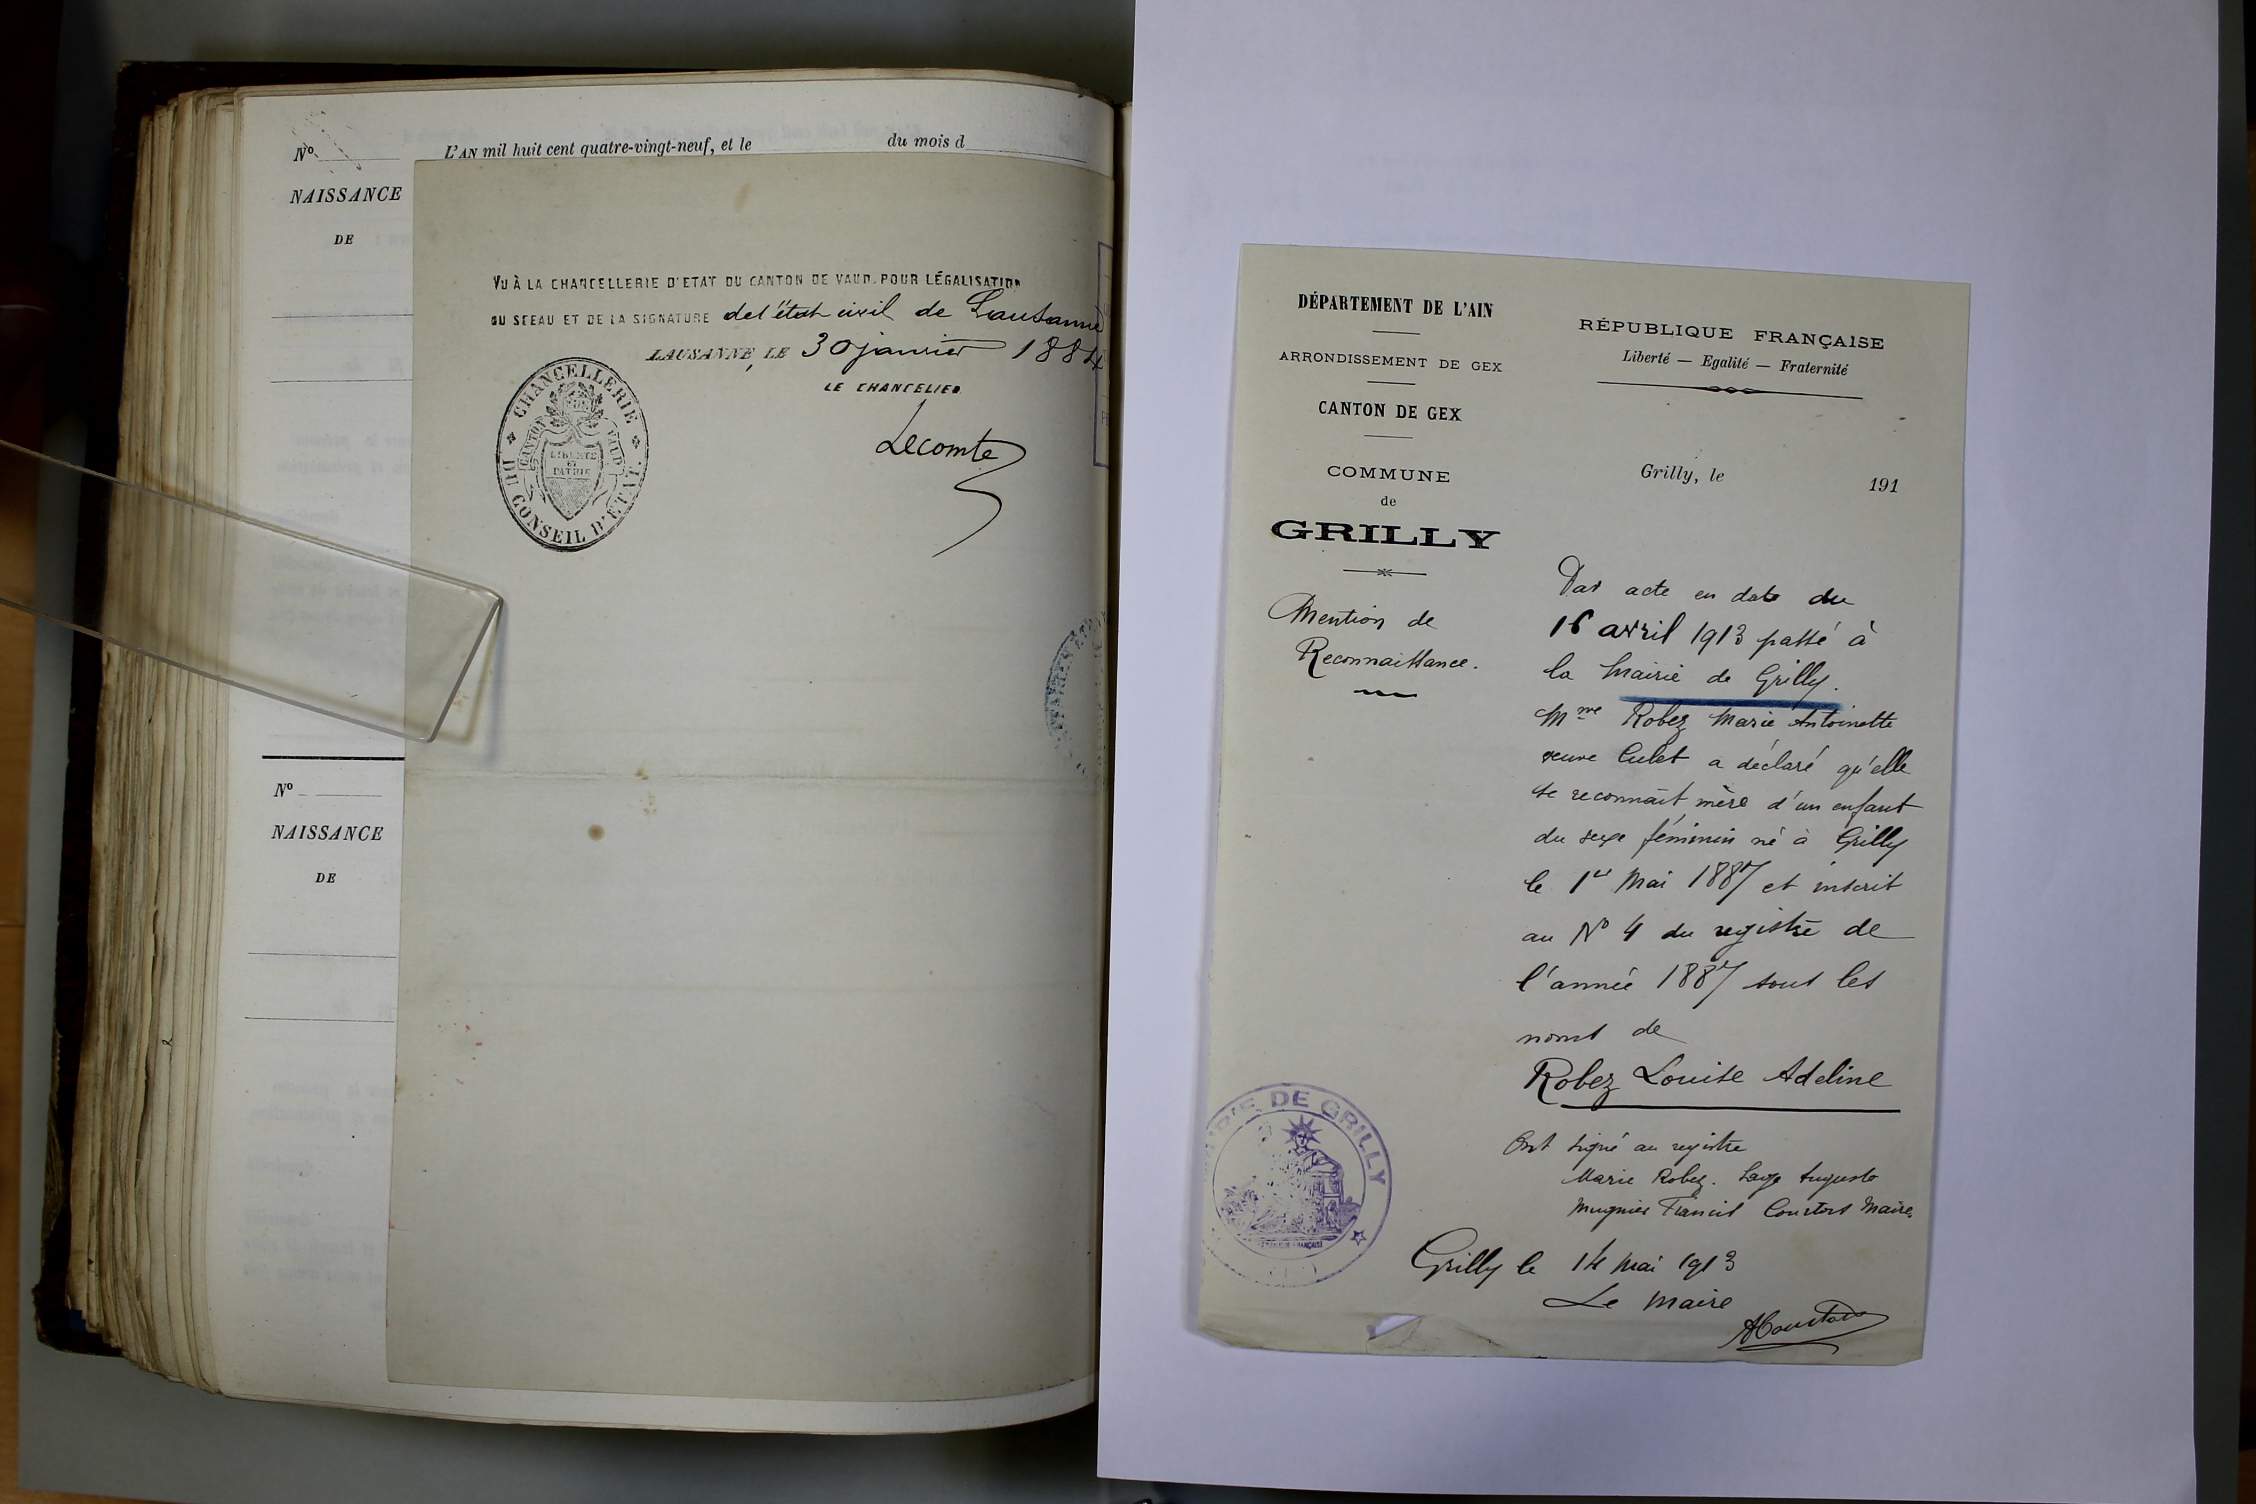 Nº
L'AN mil huit cent quatre-vingt-neuf, et le du mois d
NAISSANCE
DE
VU À LA CHANCELLERIE D'ETAT DU CANTON DE VAUD, POUR LÉGALISATION
DU SCEAU ET DE LA SIGNATURE de l'état civil de Lausanne
LAUSANNE, LE 30 janvier 1884
LE CHANCELIER
Lecomte
CHANCELLERIE DU CONSEIL D'ETAT
CANTON DE VAUD
LIBERTÉ
ET
PATRIE
Nº
NAISSANCE
DE
DÉPARTEMENT DE L'AIN
ARRONDISSEMENT DE GEX
CANTON DE GEX
COMMUNE
de
GRILLY
RÉPUBLIQUE FRANÇAISE
Liberté — Egalité — Fraternité
Grilly, le 191
Mention de
Reconnaissance.
Par acte en date du
16 avril 1913 passé à
la Mairie de Grilly.
Mme Robez Marie Antoinette
veuve Culet a déclaré qu'elle
se reconnaît mère d'un enfant
du sexe féminin né à Grilly
le 1er Mai 1887 et inscrit
au Nº 4 du registre de
l'année 1887 sous les
noms de
Robez Louise Adeline
Ont signé au registre
Marie Robez. Auguste
Mugnier Francis Courtois Maire.
Grilly le 14 mai 1913
Le Maire
ACourtois
MAIRIE DE GRILLY